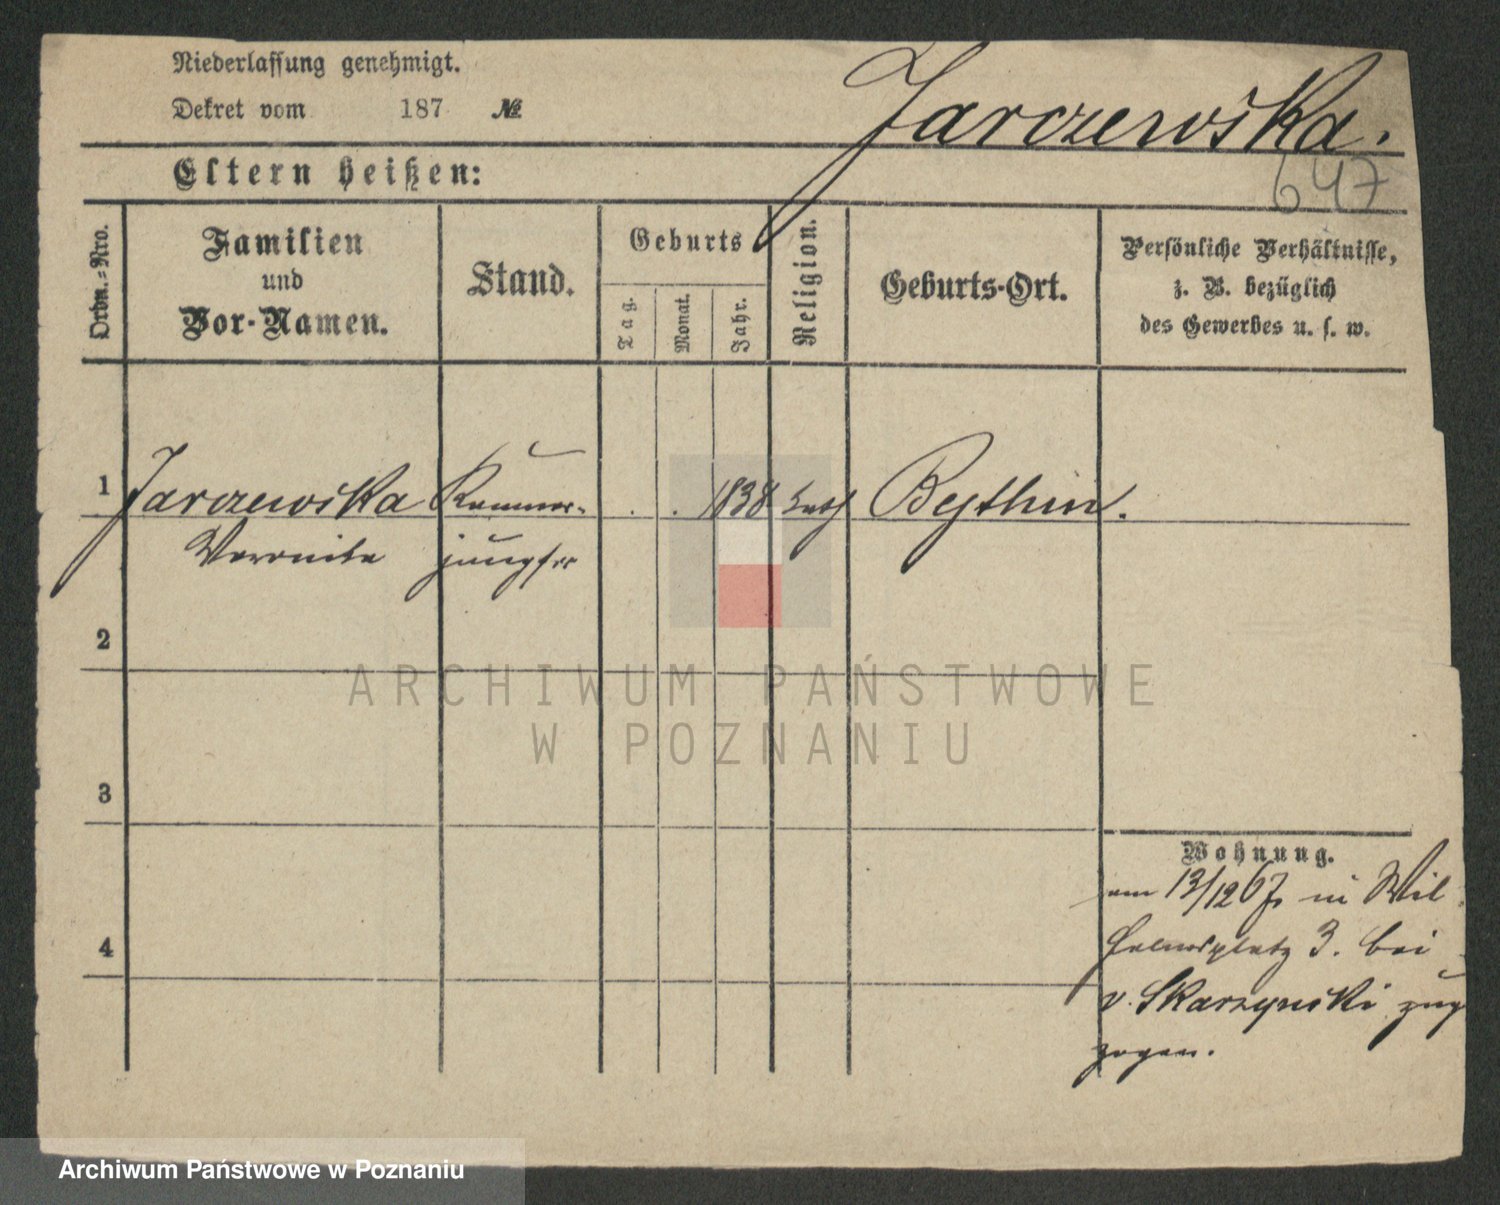 Niederlassung genehmigt.
Dekret vom 187 №
Jarczewska.
647
Eltern heißen:
Ordn.=Nro.
Familien
und
Vor-Namen.
Stand.
Geburts
Tag.
Monat.
Jahr.
Religion.
Geburts-Ort.
Persönliche Verhältnisse,
z. B. bezüglich
des Gewerbes u. s. w.
1 Jarczewska Kammer- . . 1838 kath Beythin.
Veronika jungfer
2
3
4
Wohnung.
am 13/12 67 in Wil
helmsplatz 3. bei
v. Skarzynski zuge
zogen.
ARCHIWUM PAŃSTWOWE
W POZNANIU
Archiwum Państwowe w Poznaniu